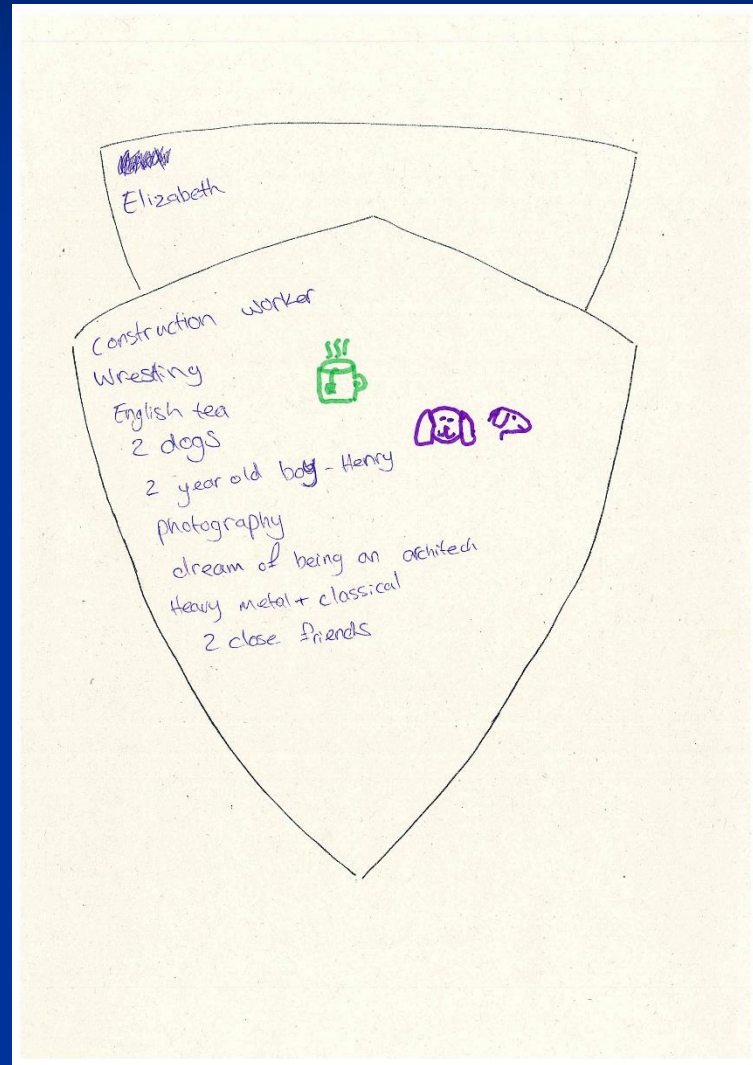 Elizabeth
Construction worker
Wrestling
English tea
2 dogs
2 year old boy - Henry
photography
dream of being an architech
Heavy metal + classical
2 close friends